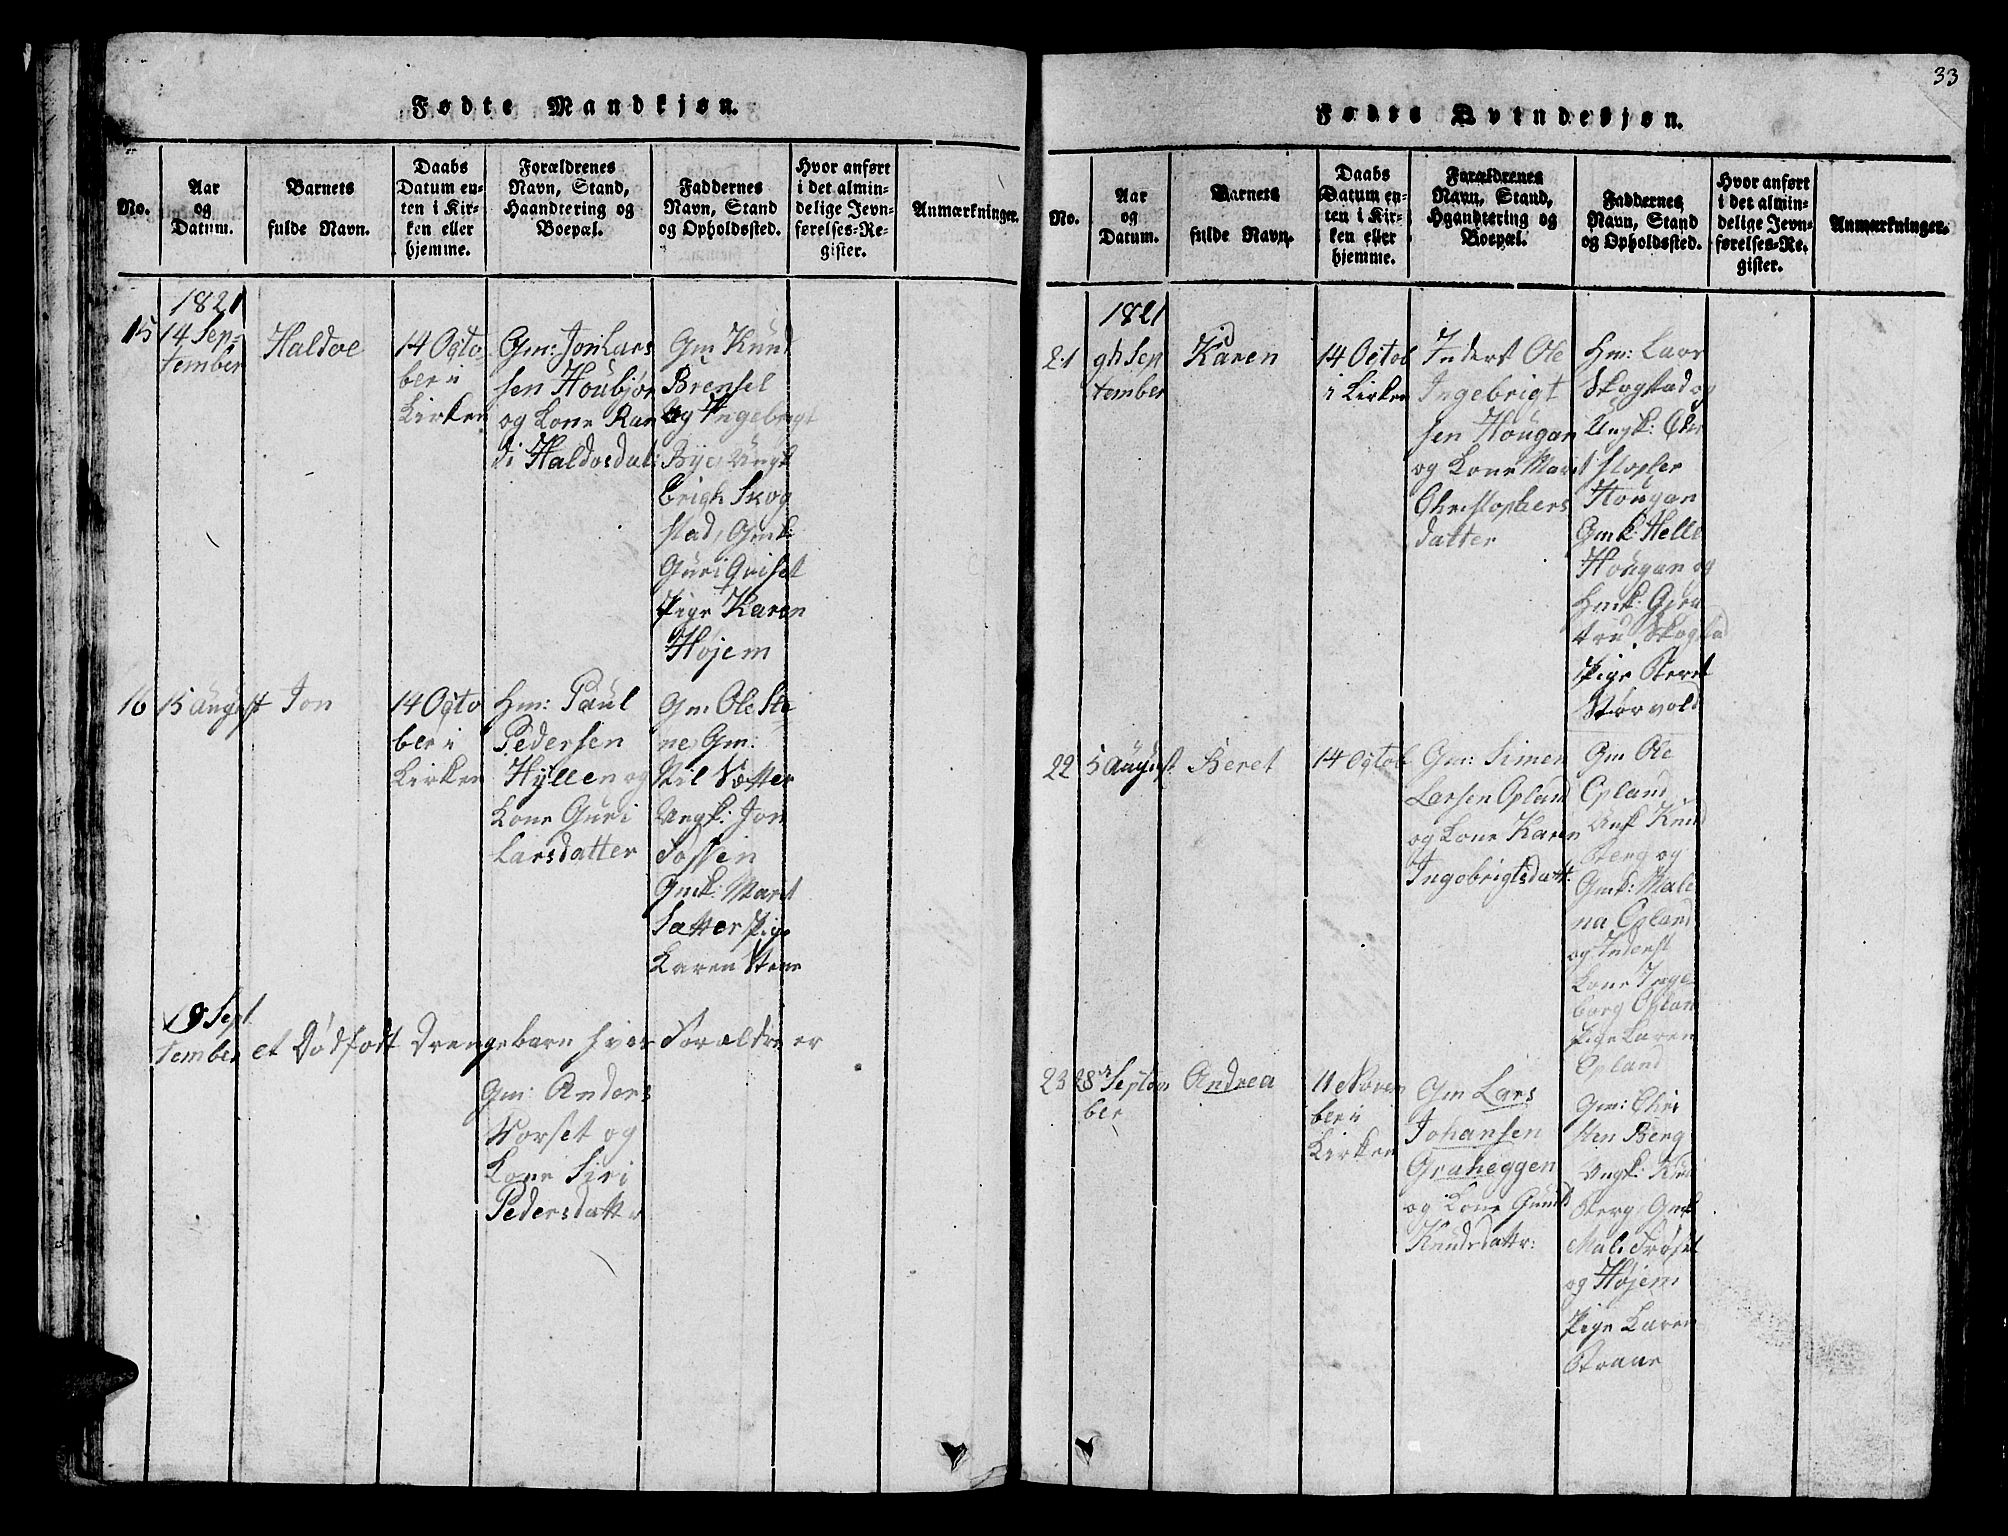 33
Fødte Mandkjøn.
No.
Aar
og
Datum.
Barnets
fulde Navn.
Daabs
Datum en-
ten i Kir-
ken eller
hjemme.
Forældrenes
Navn, Stand,
Haandtering og
Boepæl.
Faddernes
Navn, Stand
og Opholdssted.
Hvor anført
i det almin-
delige Jevn-
førelses-Re-
gister.
Anmærkninger.
1821
15
14 Sep-
tember
Haldoe
14 Octo
ber i
Kirken
Gm: Jon Lars
sen Houbjør
og Kone Ran
di Haldosdat:
Gm Knud
Brensel
og Ingebrigt
Bye, Ungk
Erich Skog
stad, Gmk:
Guri Griset
Pige Karen
Højem
16
15 August
Jon
14 Octo
ber i
Kirken
Hm: Paul
Pedersen
Hyllen og
Kone Guri
Larsdatter
Gm: Ole Ste-
ne, Gm:
Nil Sætter
Ungk: Jon
Fossen
Gmk: Marit
Sætter Pige
Karen Stene
9 Sept
tember et Dødfødt Drengebarn hvis Forældre er
Gm: Anders
Vorset og
Kone Siri
Pedersdatter
Fødte Qvindekjøn.
No.
Aar
og
Datum.
Barnets
fulde Navn.
Daabs
Datum en-
ten i Kir-
ken eller
hjemme.
Forældrenes
Navn, Stand,
Haandtering og
Boepæl.
Faddernes
Navn, Stand
og Opholdssted.
Hvor anført
i det almin-
delige Jevn-
førelses-Re-
gister.
Anmærkninger.
1821
21
9de Sep
tember
Karen
14 Octob
i Kirken
Inderst Ole
Ingebrigt
sen Hougan
og Kone Marit
Christophers
datter
Hm: Lars
Skogstad og
Ungk: Chri
stopher
Hougan
Gmk: Helle
Hougan og
Hmk: Gjer
trud Skogstad
Pige Beret
Størvold
22
5 August
Beret
14 Octob
Gm: Simen
Larsen Opland
og Kone Karen
Ingebrigtsdatt:
Gm Ole
Opland
Ungk Knud
Berg og
Gmk: Male
na Opland
og Inderst
Kone Inge-
borg Oplan
Pige Karen
Opland
23
28 Septem
ber
Andrea
11e Novem
ber i
Kirken
Gm Lars
Johansen
Graneggen
og Kone Gunild
Knudsdattr:
Gm: Chri
sten Berg
Ungk: Knu
Berg Gmk
Mali Frøset
og Højem
Pige Karen
Braae